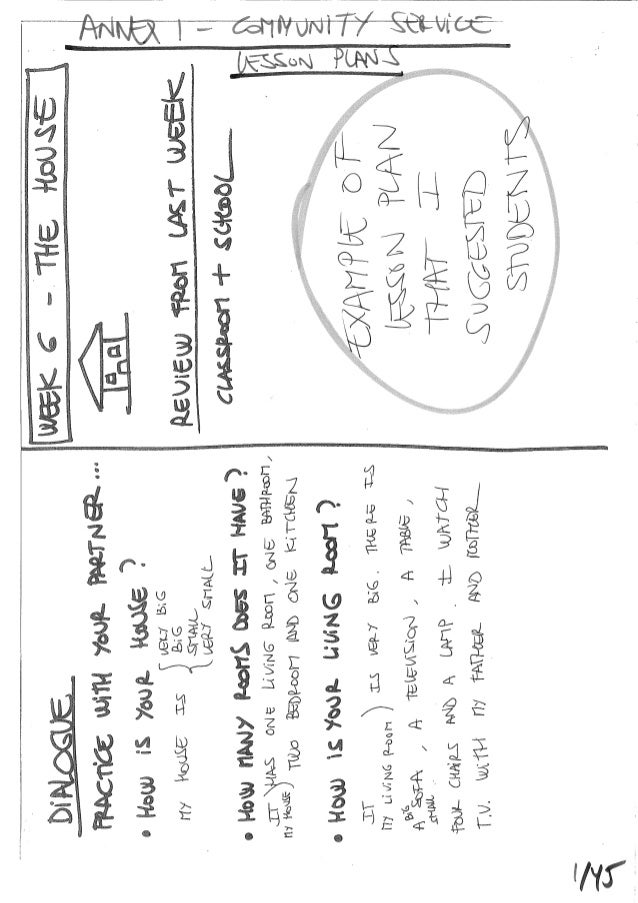 ANNEX 1 - COMMUNITY SERVICE
LESSON PLANS
WEEK 6 - THE HOUSE
REVIEW FROM LAST WEEK
CLASSROOM + SCHOOL
EXAMPLE OF
LESSON PLAN
THAT I
SUGGESTED
STUDENTS
DIALOGUE
PRACTICE WITH YOUR PARTNER...
• HOW IS YOUR HOUSE?
MY HOUSE IS { VERY BIG
BIG
SMALL
VERY SMALL
• HOW MANY ROOMS DOES IT HAVE?
IT
MY HOUSE) HAS ONE LIVING ROOM, ONE BATHROOM,
TWO BEDROOM AND ONE KITCHEN
• HOW IS YOUR LIVING ROOM?
IT
MY LIVING ROOM) IS VERY BIG. THERE IS
A BIG SMALL SOFA, A TELEVISION, A TABLE,
FOUR CHAIRS AND A LAMP. I WATCH
T.V. WITH MY FATHER AND MOTHER
1/45